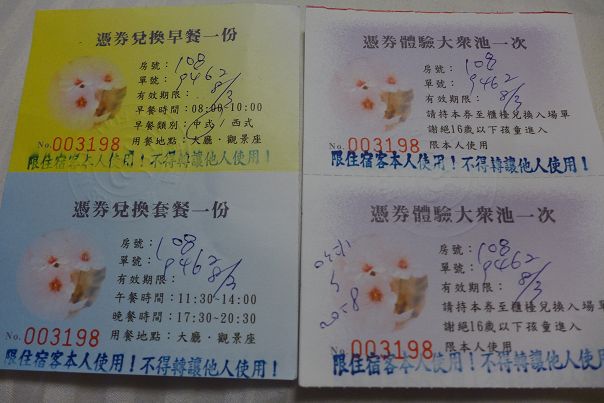 憑券兌換早餐一份
房號：108
單號：9462
有效期限：8/3
早餐時間：08:00-10:00
早餐類別：中式/西式
用餐地點：大廳．觀景座
No.003198
限住宿客本人使用！不得轉讓他人使用！
憑券體驗大衆池一次
房號：108
單號：9462
有效期限：8/3
請持本券至櫃檯兌換入場單
謝絕16歲以下孩童進入
限本人使用
No.003198
限住宿客本人使用！不得轉讓他人使用！
憑券兌換套餐一份
房號：108
單號：9462
有效期限：8/3
午餐時間：11:30-14:00
晚餐時間：17:30-20:30
用餐地點：大廳．觀景座
No.003198
限住宿客本人使用！不得轉讓他人使用！
憑券體驗大衆池一次
房號：108
單號：9462
有效期限：8/3
請持本券至櫃檯兌換入場單
謝絕16歲以下孩童進入
限本人使用
No.003198
限住宿客本人使用！不得轉讓他人使用